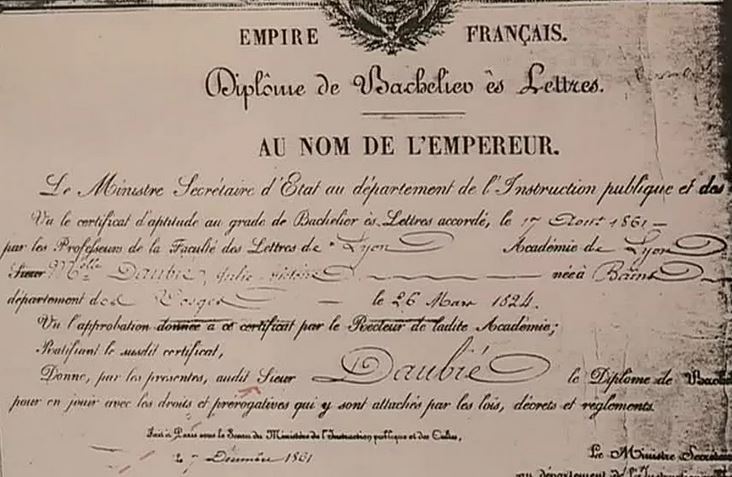 EMPIRE FRANÇAIS.
Diplôme de Bachelier ès Lettres.
AU NOM DE L'EMPEREUR.
Le Ministre Secrétaire d'Etat au département de l'Instruction publique et des
Vu le certificat d'aptitude au grade de Bachelier ès-Lettres accordé, le 17 Aout 1861
par les Professeurs de la Faculté des Lettres de Lyon Académie de Lyon
Sieur Mlle Daubié, Julie Victoire née à Bains
département des Vosges le 26 Mars 1824.
Vu l'approbation donnée à ce certificat par le Recteur de ladite Académie;
Ratifiant le susdit certificat,
Donne, par les présentes, audit Sieur Daubié le Diplôme de Bachel
pour en jouir avec les droits et prérogatives qui y sont attachés par les lois, décrets et règlements.
Fait à Paris sous le Sceau du Ministère de l'Instruction publique et des Cultes,
Décembre 1861
Le Ministre Secrétai
au département de l'